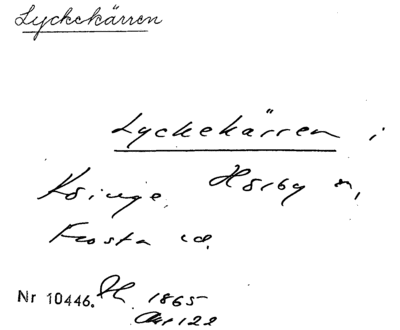 Lyckekärren
Lyckekärren i
Osinge, Hörby sn,
Frosta hd.
Nr 10446. 1865
Akt 122